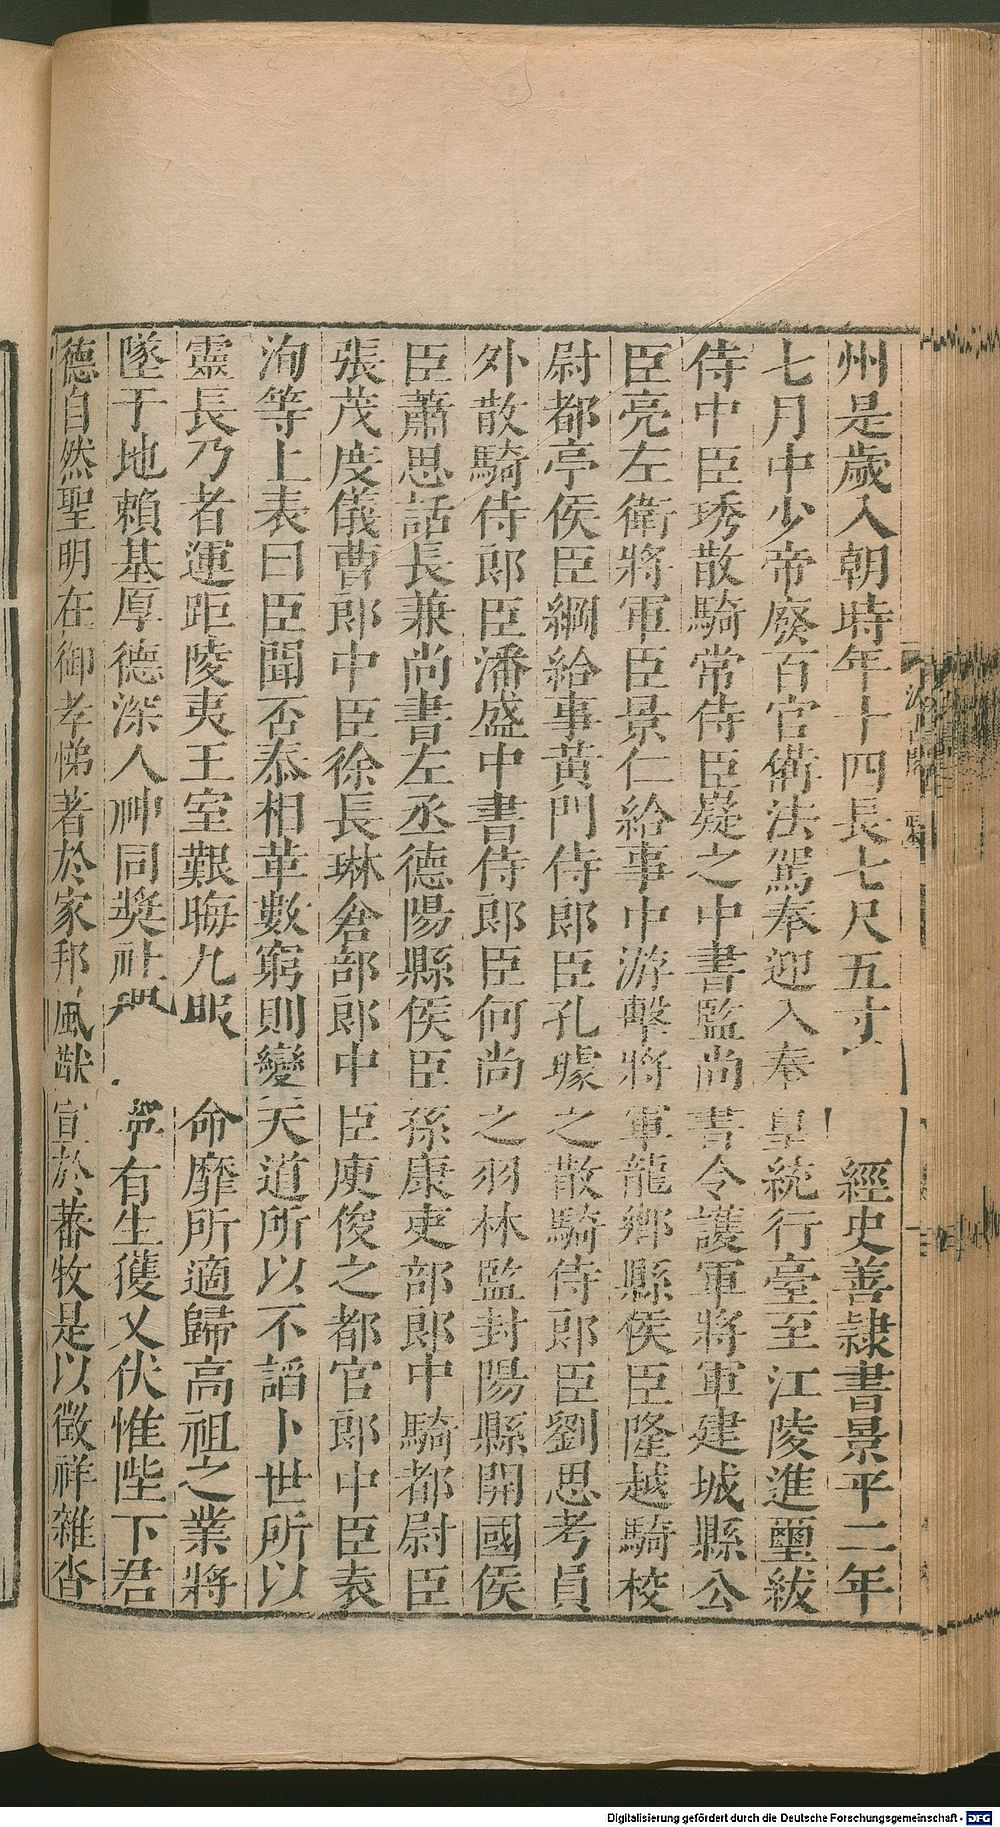 州是歲入朝時年十四長七尺五寸 經史善隷書景平二年
七月中少帝廢百官備法駕奉迎入奉皇統行臺至江陵進璽紱
侍中臣琇散騎常侍臣嶷之中書監尚書令護軍將軍建城縣公
臣亮左衛將軍臣景仁給事中游擊將軍龍鄉縣侯臣隆越騎校
尉都亭侯臣綱給事黃門侍郎臣孔璩之散騎侍郎臣劉思考員
外散騎侍郎臣潘盛中書侍郎臣何尚之羽林監封陽縣開國侯
臣蕭思話長兼尚書左丞德陽縣侯臣孫康吏部郎中騎都尉臣
張茂度儀曹郎中臣徐長琳倉部郎中臣庾俊之都官郎中臣袁
洵等上表曰臣聞否泰相革數窮則變天道所以不謟卜世所以
靈長乃者運距陵夷王室艱晦九服 命靡所適歸高祖之業將
墜于地賴基厚德深人神同奬社 寧有生獲乂伏惟陛下君
德自然聖明在御孝悌著於家邦風猷宣於蕃牧是以徵祥雜沓
汲古閣
Digitalisierung gefördert durch die Deutsche Forschungsgemeinschaft - DFG